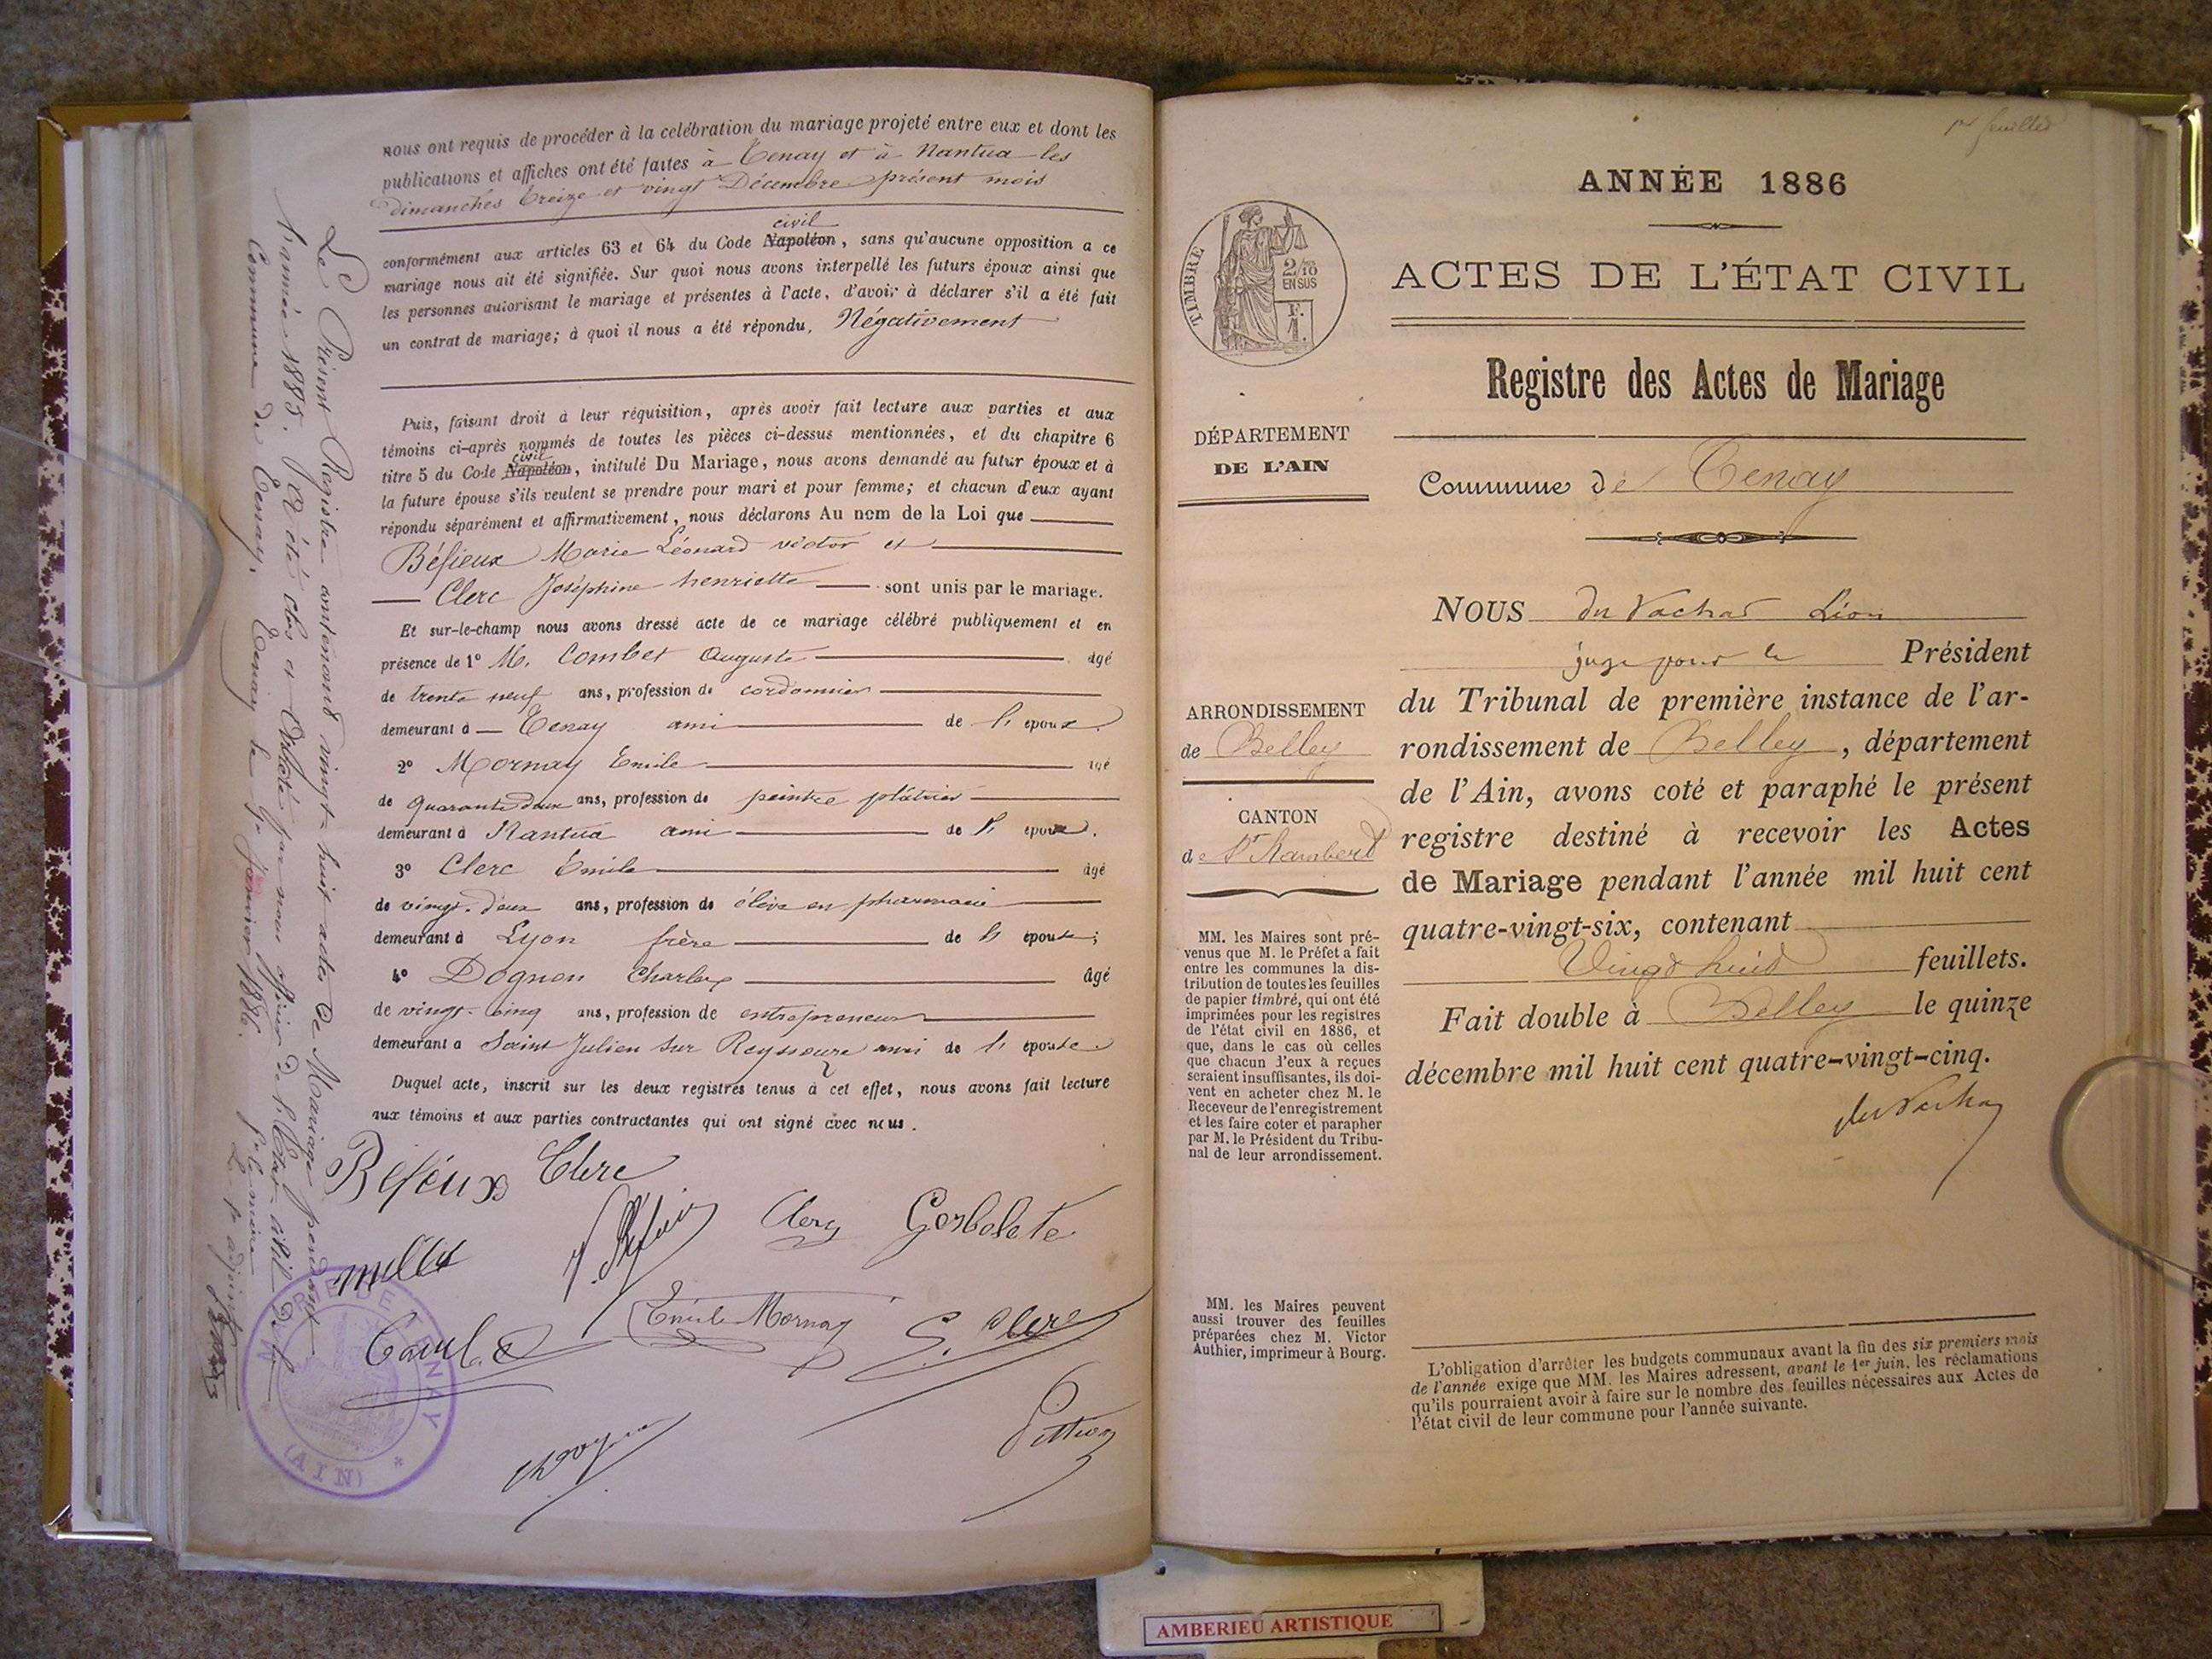 nous ont requis de procéder à la celébration du mariage projeté entre eux et dont les
publications et affiches ont été faites à Tenay et à Nantua les
dimanches treize et vingt Décembre présent mois
civil
conformément aux articles 63 et 64 du Code Napoléon, sans qu'aucune opposition a ce
mariage nous ait été signifiée. Sur quoi nous avons interpellé les futurs époux ainsi que
les personnes autorisant le mariage et présentes à l'acte, d'avoir à déclarer s'il a été fait
un contrat de mariage; à quoi il nous a été répondu, Négativement
Puis, faisant droit à leur réquisition, après avoir fait lecture aux parties et aux
témoins ci-après nommés de toutes les pièces ci-dessus mentionnées, et du chapitre 6
civil
titre 5 du Code Napoléon, intitulé Du Mariage, nous avons demandé au futur époux et à
la future épouse s'ils veulent se prendre pour mari et pour femme; et chacun d'eux ayant
répondu séparément et affirmativement, nous déclarons Au nom de la Loi que
Béfieux Marie Léonard victor et
Clerc Joséphine henriette sont unis par le mariage.
Et sur-le-champ nous avons dressé acte de ce mariage célébré publiquement et en
présence de 1° M. Combet Auguste âgé
de trente neuf ans, profession de cordonnier
demeurant à Tenay ami de l' époux.
2° Mornay Emile âgé
de quarante deux ans, profession de peintre plâtrier
demeurant à Nantua ami de l' époux.
3° Clerc Emile âgé
de vingt-deux ans, profession de élève en pharmacie
demeurant à Lyon frère de l' épouse;
4° Dognon Charles âgé
de vingt-cinq ans, profession de entrepreneur
demeurant a Saint Julien sur Reyssouze ami de l' épouse.
Duquel acte, inscrit sur les deux registres tenus à cet effet, nous avons fait lecture
aux témoins et aux parties contractantes qui ont signé avec nous.
Béfieux Clerc
Clerc Gorbolete
millet
Emile Mornay E. Clerc
Pittion
MAIRIE DE TENAY
(AIN) *
Le Présent Registre contenant vingt-huit actes de Mariage pendant
l'année 1885. A été clos et arrêté par nous officier de l'Etat civil de la
Commune de Tenay. Tenay le 1er Janvier 1886.
Pr le maire
Le 1er adjoint
1er feuillet
ANNÉE 1886
TIMBRE
2/10
EN SUS
F.
1.
ACTES DE L'ÉTAT CIVIL
Registre des Actes de Mariage
DÉPARTEMENT
DE L'AIN
Commune de Tenay
NOUS du Vachat Léon
juge pour le Président
du Tribunal de première instance de l'ar-
rondissement de Belley, département
de l'Ain, avons coté et paraphé le présent
registre destiné à recevoir les Actes
de Mariage pendant l'année mil huit cent
quatre-vingt-six, contenant
Vingt huit feuillets.
Fait double à Belley le quinze
décembre mil huit cent quatre-vingt-cinq.
du Vachat
ARRONDISSEMENT
de Belley
CANTON
de St Rambert
MM. les Maires sont pré-
venus que M. le Préfet a fait
entre les communes la dis-
tribution de toutes les feuilles
de papier timbré, qui ont été
imprimées pour les registres
de l'état civil en 1886, et
que, dans le cas où celles
que chacun d'eux a reçues
seraient insuffisantes, ils doi-
vent en acheter chez M. le
Receveur de l'enregistrement
et les faire coter et parapher
par M. le Président du Tribu-
nal de leur arrondissement.
MM. les Maires peuvent
aussi trouver des feuilles
préparées chez M. Victor
Authier, imprimeur à Bourg.
L'obligation d'arrêter les budgets communaux avant la fin des six premiers mois
de l'année exige que MM. les Maires adressent, avant le 1er juin, les réclamations
qu'ils pourraient avoir à faire sur le nombre des feuilles nécessaires aux Actes de
l'état civil de leur commune pour l'année suivante.
AMBERIEU ARTISTIQUE